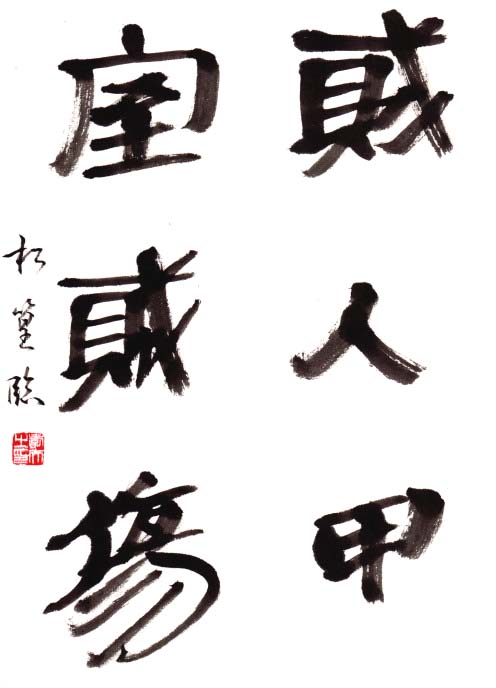 賊人甲
室賊傷
松篁臨